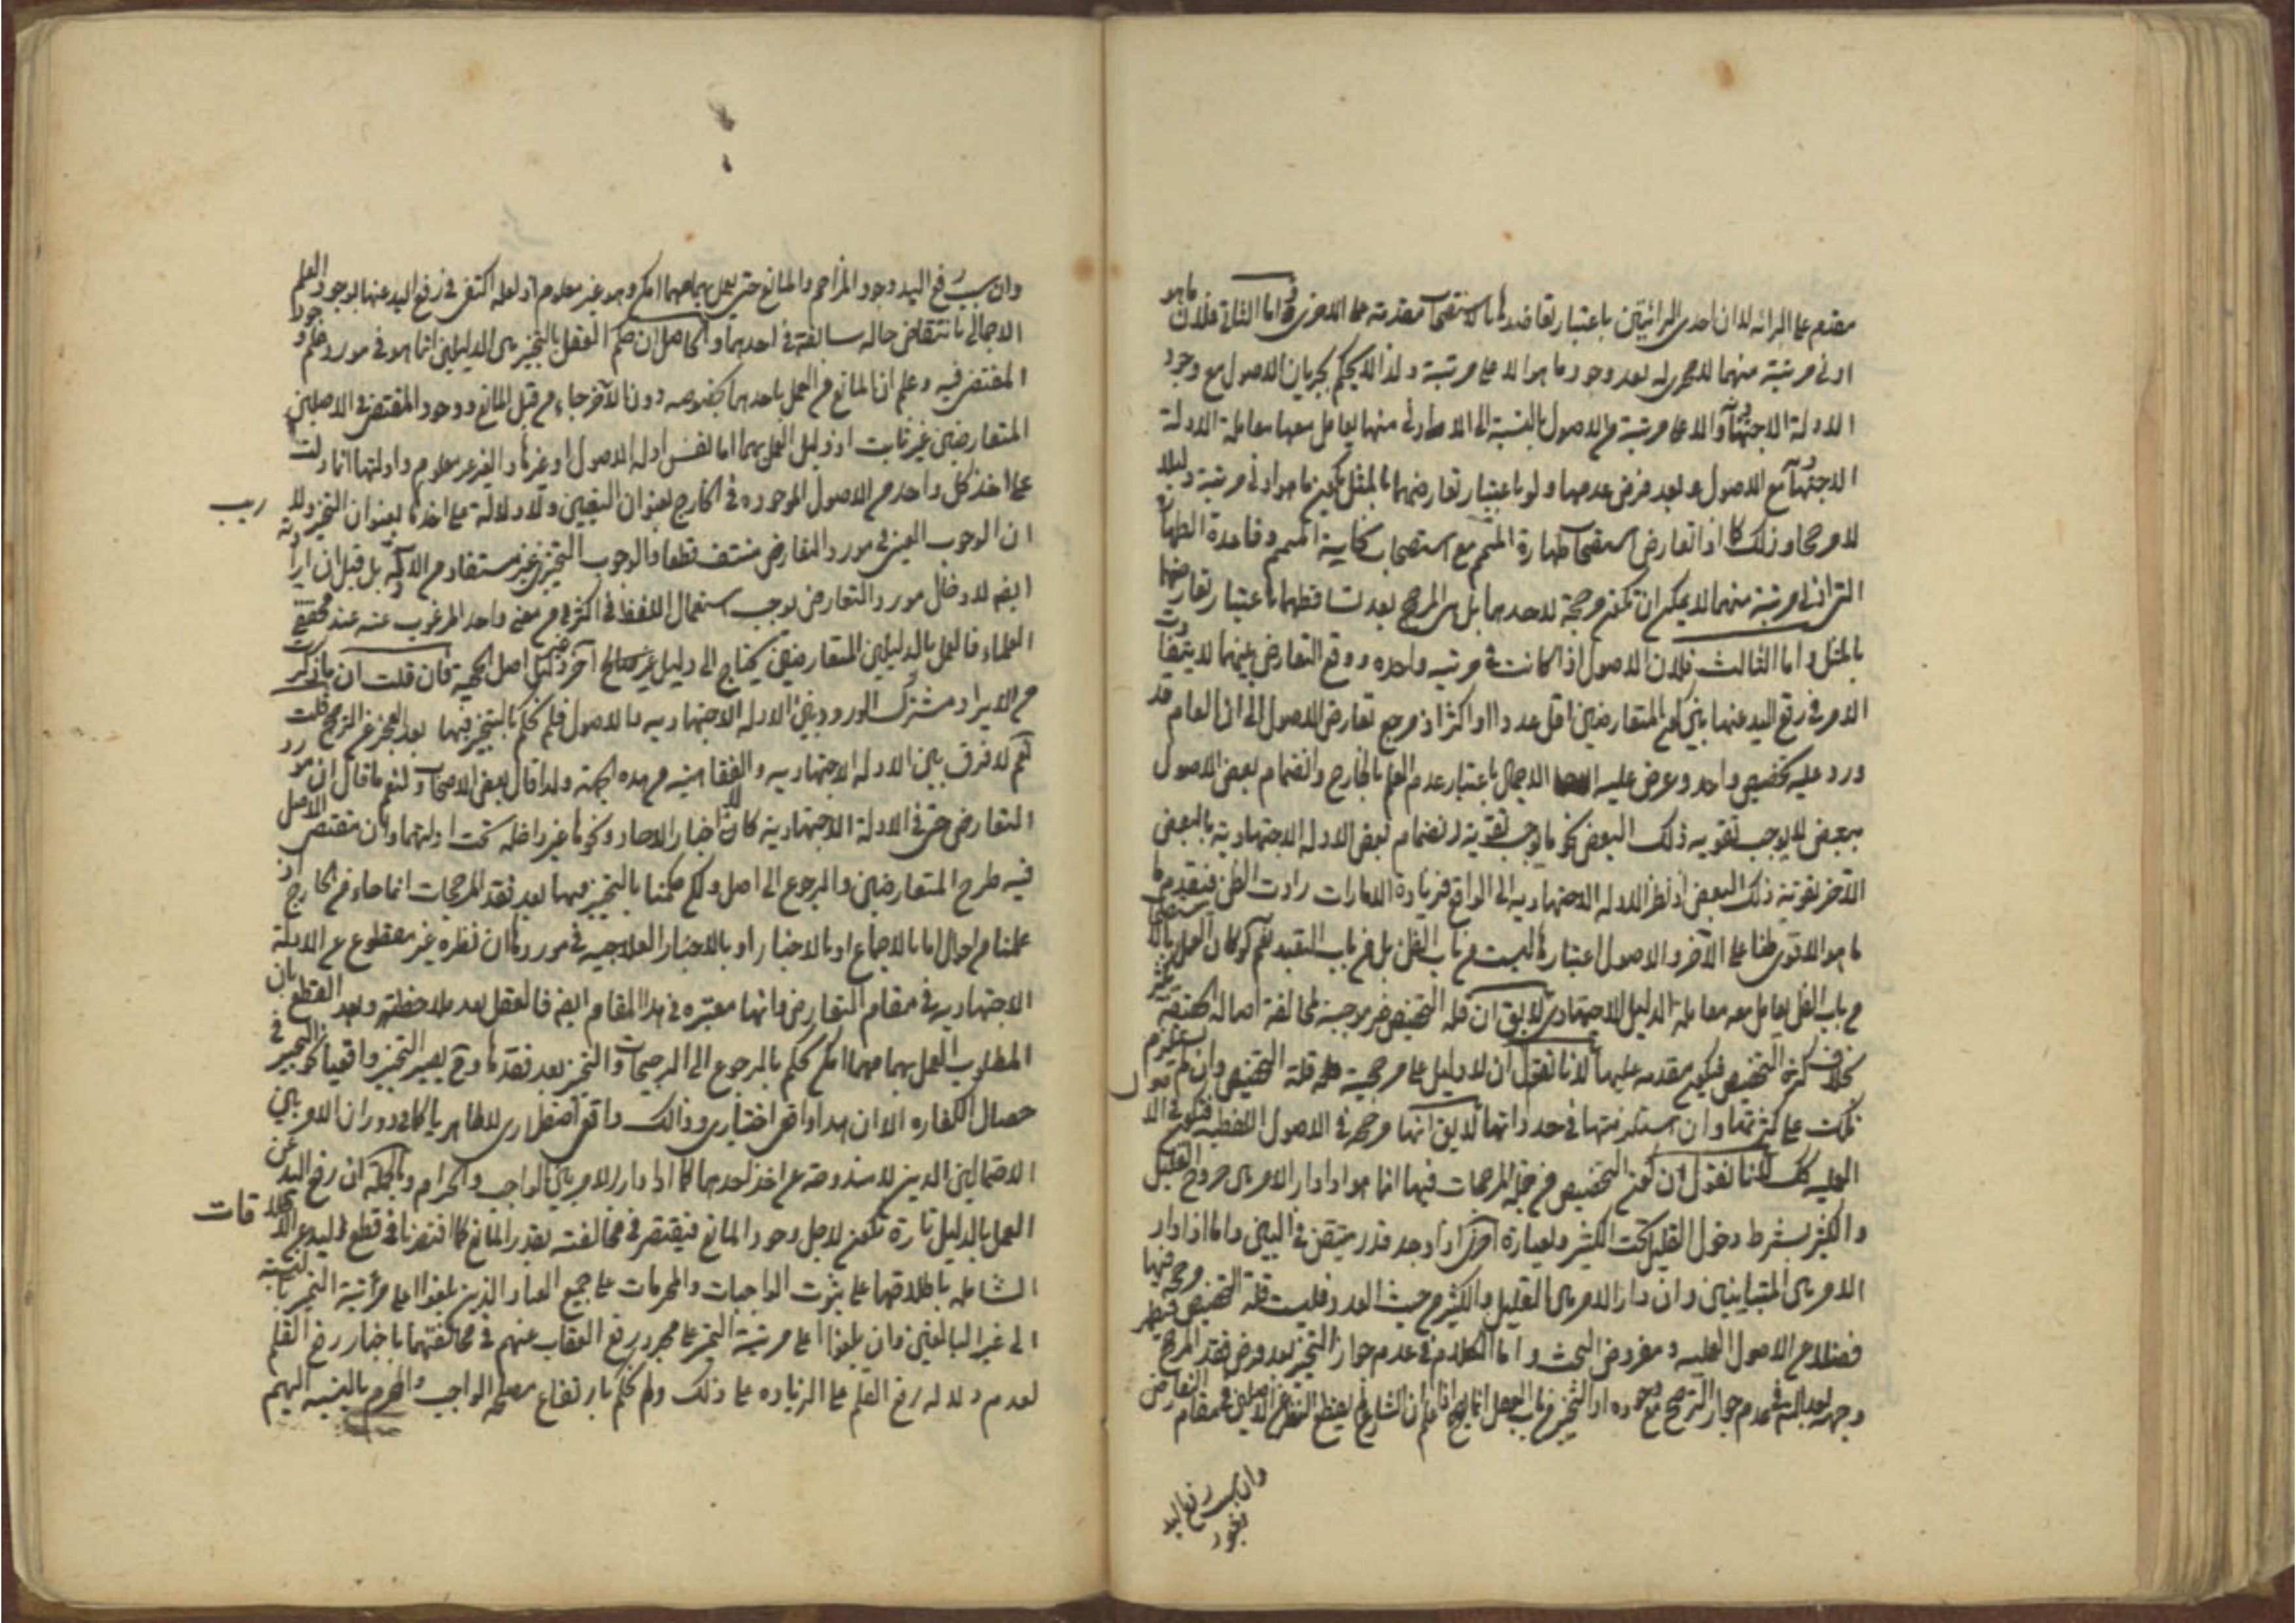 مقدم على البرائه لان احدى البرائتين باعتبار تعاضدها بالاستصحاب مقدمة على الاخرى واما الثاني فلان ما هو
ادنى مرتبة منهما لا مجرى له بعد وجود ما هو الاعلى مرتبة ولذا لا يحكم بجريان الاصول مع وجود
الادلة الاجتهادية والاعلى مرتبة من الاصول بالنسبة الى الادنى منها يعامل معها معاملة الادلة
الاجتهادية مع الاصول وبعد فرض عدمها ولو باعتبار تعارضهما بالمثل يكون ما هو ادنى مرتبة دليلا
لا مرجحا وذلك كما اذا تعارض استصحاب طهارة المتمم مع استصحاب نجاسة المتمم وقاعدة الطهارة
التي ادنى مرتبة منهما لا يمكن ان تكون مرجحة لاحدهما بل هي المرجع بعد تساقطهما باعتبار تعارضهما
بالمثل واما الثالث فلان الاصول اذا كانت في مرتبه واحده ووقع التعارض بينهما لا يتفاوت
الامر في رفع اليد عنها بين كون المتعارضين اقل عددا او اكثر اذ مرجع تعارض الاصول الى ان العام قد
ورد عليه تخصيص واحد وعرض عليه الاجمال باعتبار عدم العلم بالخارج وانضمام بعض الاصول
ببعض لا يوجب تقويه ذلك البعض نحو ما يوجب تقويته انضمام بعض الادله الاجتهادية بالبعض
الآخر تقوية ذلك البعض اذ نظر الادله الاجتهاديه الى الواقع فزيادة الامارات زادت الظن فيقدم
ما هو الاقوى ظنا على الآخر والاصول اعتبارها ليست من باب الظن بل من باب التعبد نعم لو كان العمل
من باب الظن يعامل معه معاملة الدليل الاجتهادي لا يق ان قلة التخصيص غير موجبة لمخالفة اصالة الحقيقة
بخلاف كثرة التخصيص فيكون مقدمه عليها لانا نقول ان لا دليل على مرجحية قلة التخصيص وان
على كثرتها وان في حد ذاتها لا يق انها مرجحة في الاصول اللفظية فتكون في الا
العمليه كك لانا نقول ان كون التخصيص من جملة المرجحات فيها انما هو اذا دار الامر بين خروج القليل
والكثير بشرط دخول القليل تحت الكثير وبعبارة اخرى اذا وجد قدر متيقن في البين واما اذا دار
الامر بين المتباينين وان دار الامر بين القليل والكثير من حيث العدد فليست قلة التخصيص مرجحة فيها
فضلا من الاصول العمليه ومفروض البحث واما الكلام في عدم جواز التخيير بعد فرض فقد المرجح
وجهه بعد البناء في عدم جواز الترجيح مع وجوده ان التخيير من باب العقل انما هو اذا علم ان الشارع لم يغمض النظر عن الاصلين في مقام التعارض
وان سبب رفع اليد
وجود
وان سبب رفع اليد وجود المزاحم والمانع حتى يعمل بهما مهما امكن وهو غير معلوم اذ لعله اكتفى في رفع اليد عنها بوجود العلم
الاجمالي بانتقاض حاله سالفة في احدهما والحاصل ان حكم العقل بالتخيير بين الدليلين انما هو في مورد علم وجود
المقتضى فيه وعلم ان المانع من العمل باحدهما بخصوصه دون الآخر جاء من قبل المانع ووجود المقتضى في الاصلين
المتعارضين غير ثابت اذ دليل العمل بهما اما نفس ادله الاصول او غيرها والغير غير معلوم وادلتها انما دلت
على اخذ كل واحد من الاصول الموجوده في الخارج بعنوان التعيين ولا دلالة على اخذها بعنوان التخيير ولا ريب
ان الوجوب العيني في مورد التعارض منتف قطعا والوجوب التخييري غير مستفاد من الادلة بل قيل ان ارادته
ايضا لادخال مورد التعارض يوجب استعمال اللفظ في اكثر من معنى واحد المرغوب عنه عند محققي
العلماء فالعمل بالدليلين المتعارضين يحتاج الى دليل علاجي آخر غير دليل اصل الحجية فان قلت ان ما ذكرت
من الايراد مشترك الورود بين الادله الاجتهاديه والاصول فلم تحكم بالتخيير فيها بعد العجز عن الترجيح قلت
نعم لا فرق بين الادله الاجتهاديه والفقاهتيه من هذه الجهة ولذا قال بعض الاصحاب ولنعم ما قال ان مورد
التعارض حتى في الادلة الاجتهادية كان اخبار الاحاد ونحوها غير داخله تحت ادلتهما وان مقتضى الاصل
فيه طرح المتعارضين والرجوع الى اصل ولكن حكمنا بالتخيير فيهما بعد فقد المرجحات انما جاء من الخارج اذ
علمنا من احوال امامنا بالاجماع او بالاخبار او بالاخبار العلاجيه في موردها ان نظره غير مقطوع عن الادلة
الاجتهاديه في مقام التعارض وانها معتبره في هذا المقام ايضا فالعقل بعد ملاحظته وبعد القطع بان
المطلوب العمل بهما مهما امكن حكم بالرجوع الى المرجحات والتخيير بعد فقدها وح يصير التخيير واقعيا كالتخيير في
خصال الكفاره الا ان هذا واقعي اختياري وذلك واقعي اضطراري لا ظاهريا كما في دوران الامر بين
الاحتمالين الذين لا مندوحة عن اخذ احدهما كما اذا دار الامر بين الواجب والحرام وبالجملة ان رفع اليد عن
العمل بالدليل تارة تكون لاجل وجود المانع فيقتصر في مخالفته بقدر المانع كما اقتصرنا في قطع اليد عن الاطلاقات
الشامله باطلاقها على ثبوت الواجبات والمحرمات على جميع العباد الذين بلغوا اعلى مرتبة التميز بالنسبة
الى غير البالغين وان بلغوا اعلى مرتبة التميز على مجرد رفع العقاب عنهم في مخالفتهما باخبار رفع القلم
لعدم دلاله رفع القلم على الزياده على ذلك ولم نحكم بارتفاع مصلحة الواجب والمحرم بالنسبه اليهم